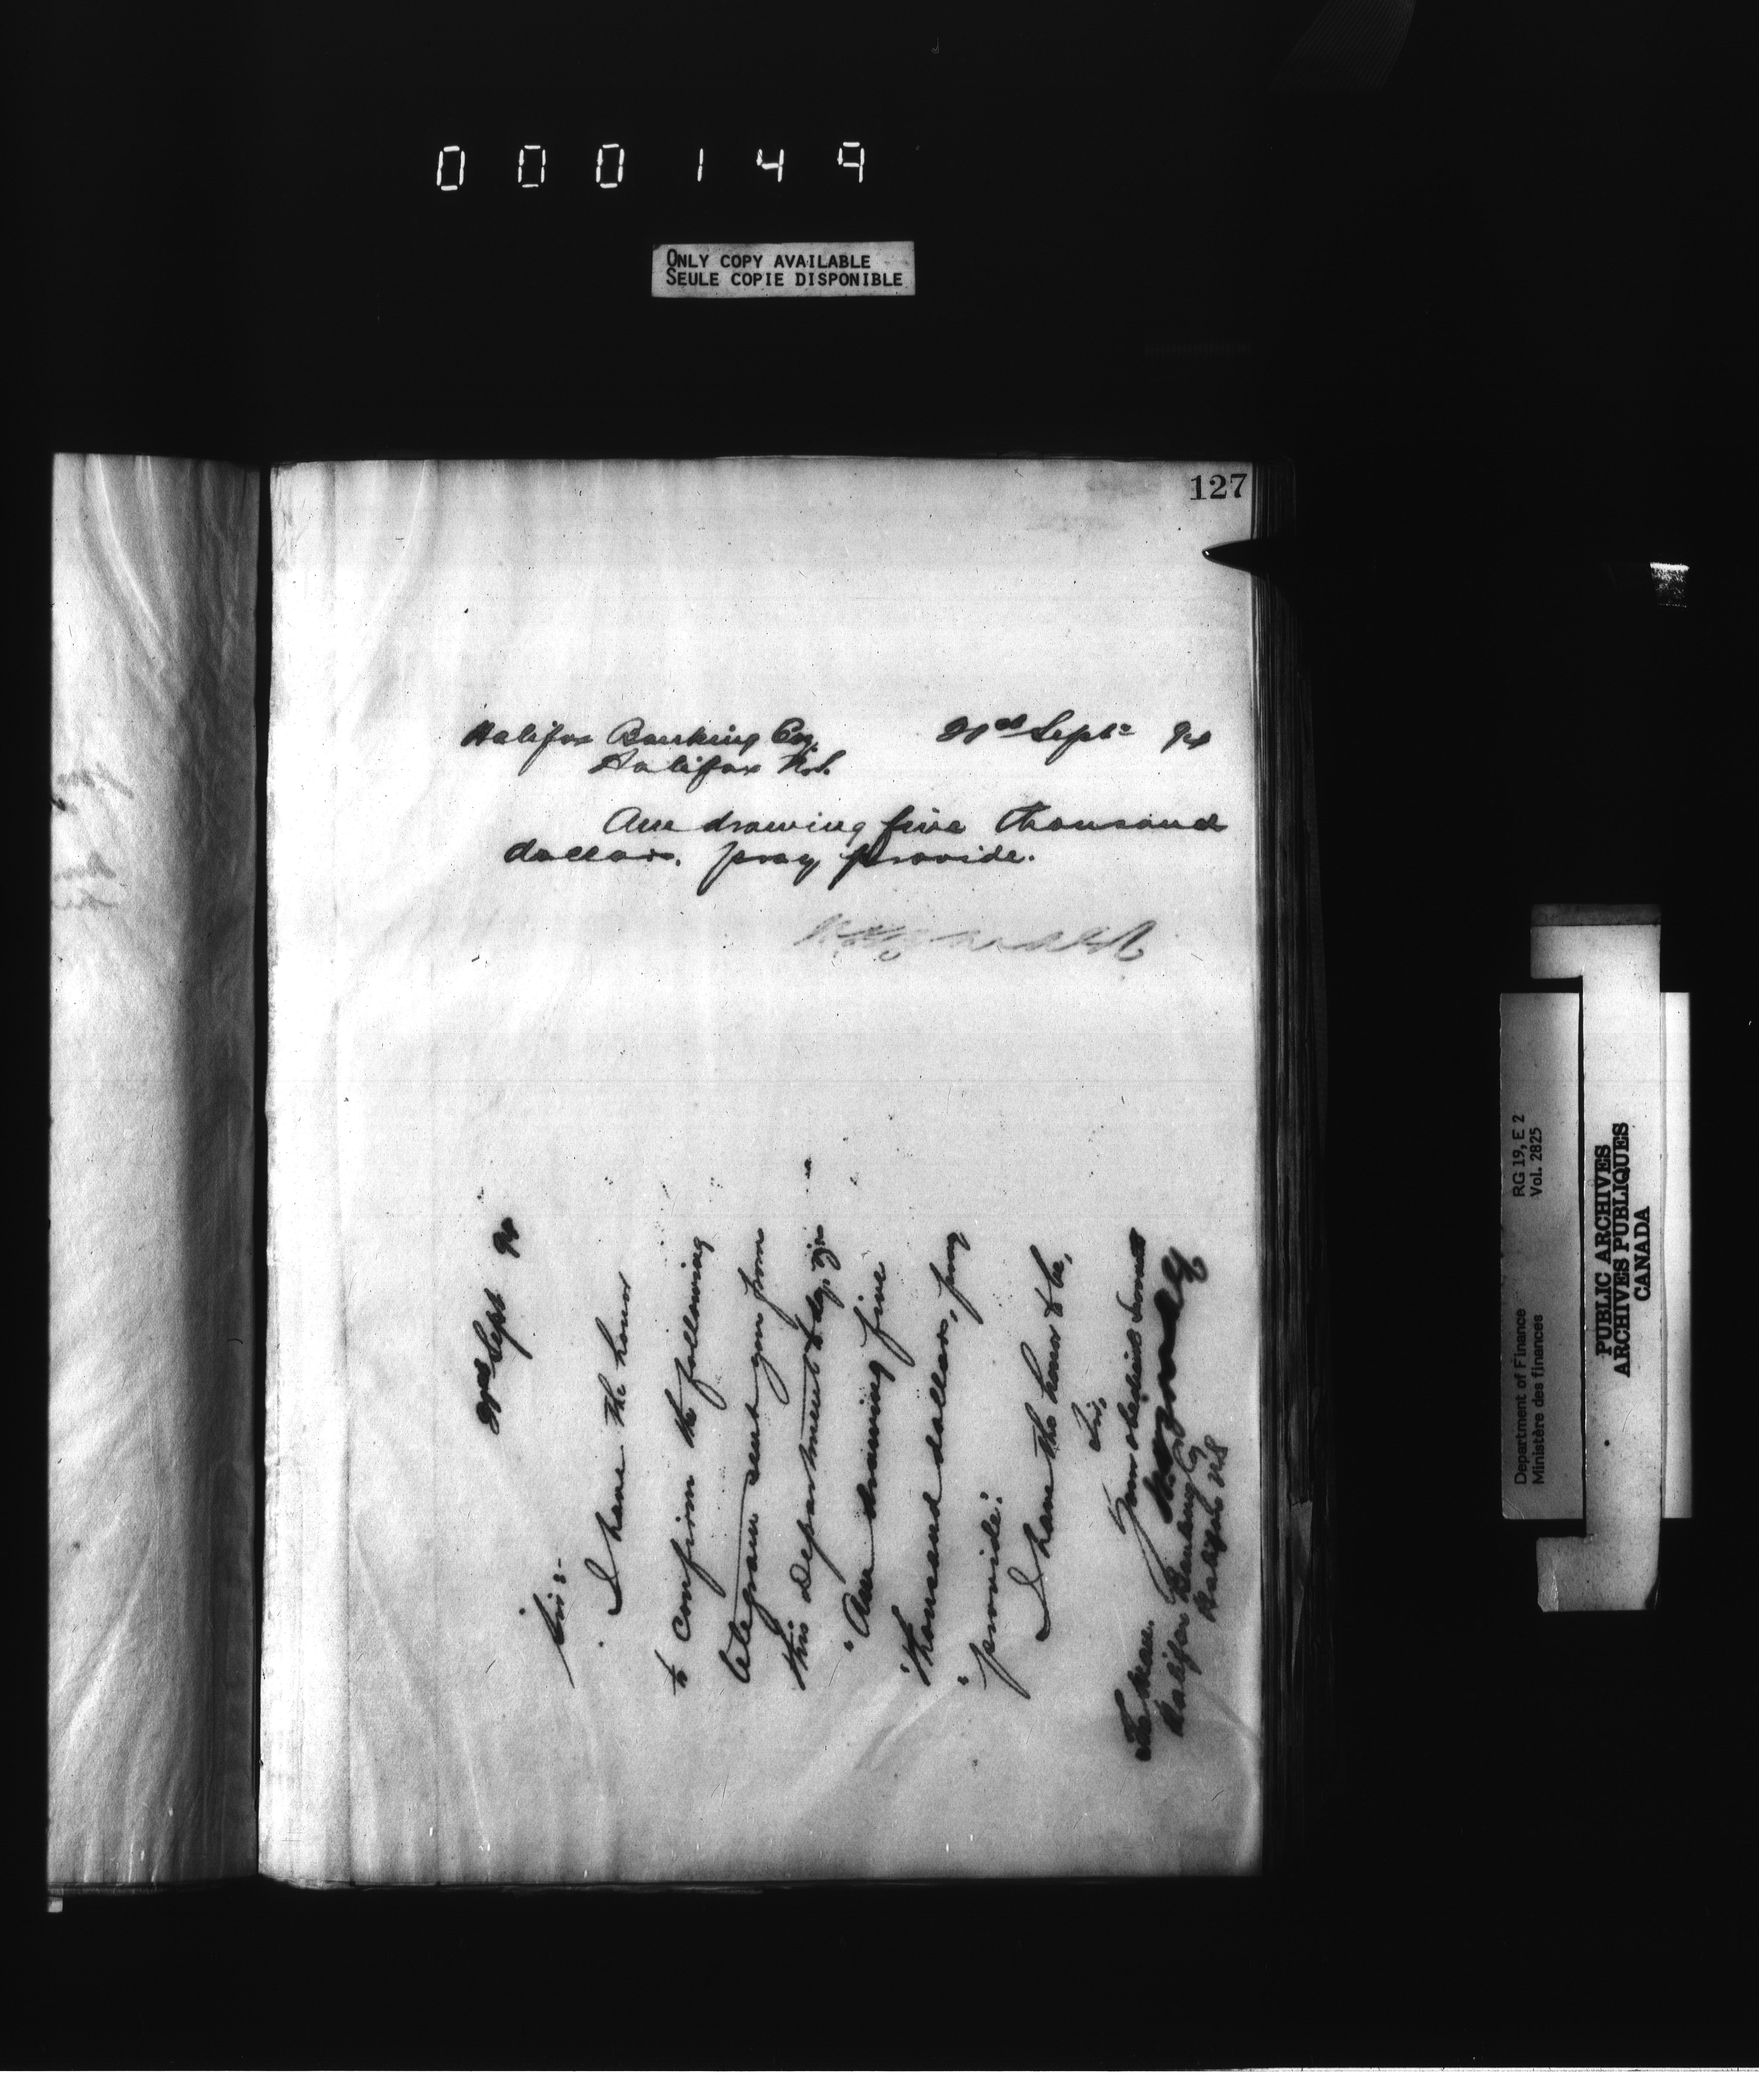 000149
ONLY COPY AVAILABLE
SEULE COPIE DISPONIBLE
127
Halifax Banking Coy. 21st Septr 94
Halifax N.S.
Am drawing five thousand
dollars. pray provide.
21st Sept 94
Sir:-
I have the honor
to confirm the following
telegram sent you from
this Department to-day, viz:-
"Am drawing five
"thousand dollars, pray
"provide."
I have the honor to be,
Sir,
Your obedient Servant
The Man.
Halifax Banking Co
Halifax N.S
RG 19, E 2
Vol. 2825
Department of Finance
Ministère des finances
PUBLIC ARCHIVES
ARCHIVES PUBLIQUES
CANADA